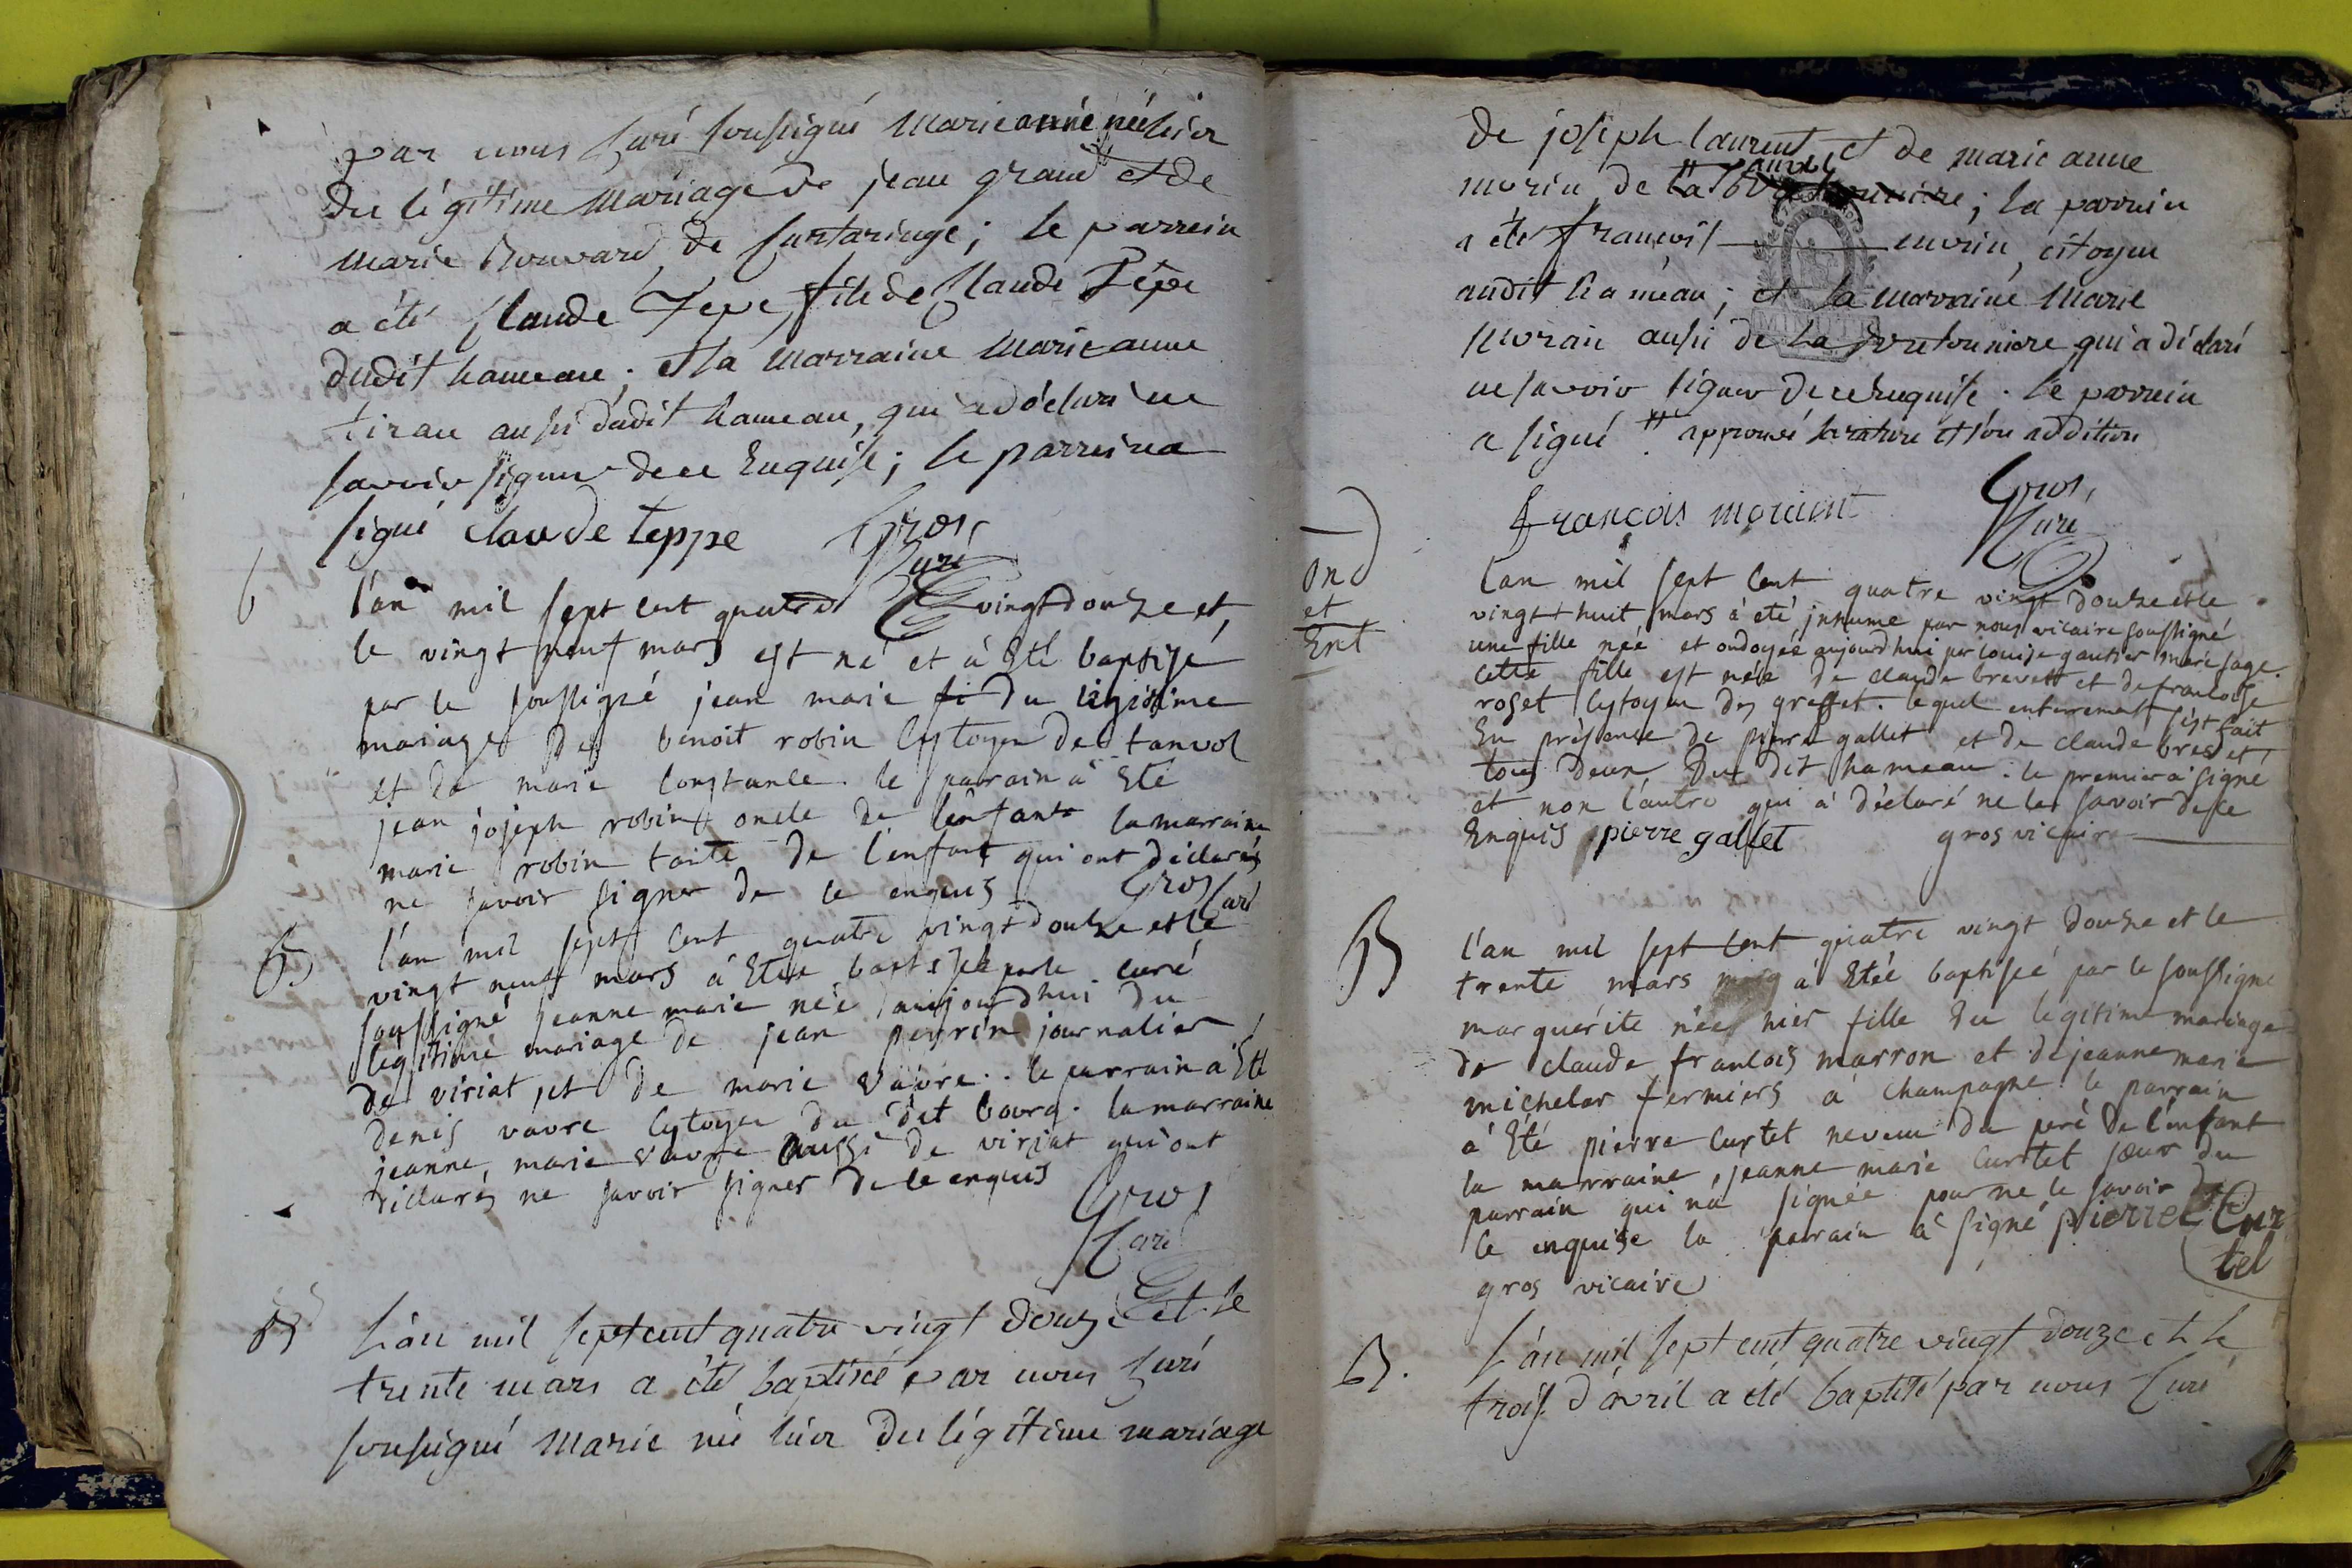 par nous Curé soussigné marie anne née hier
du légitime mariage de jean grand et de
marie Bouvard de Curtaringe; le parrein
a été Claude Tepe, fils de Claude Tépe
dudit hameau; et la marraine marie anne
tiran aussi dudit hameau, qui a déclaré ne
savoir signer de ce Enquise; le parrein a
signé claude teppe Gros,
Curé
l'an mil sept cent quatre vingt douze et
le vingt neuf mars est né et à Eté baptisé
par le soussigné jean marie fi du légitime
mariage de benoit robin Cytoyen de tanvol
et de marie Constance. le parrain à Eté
jean joseph robin oncle de l'enfant la marraine
marie robin tante de l'enfant qui ont déclarés
ne savoir signer de ce enquis Gros Curé
B
l'an mil sept cent quatre vingt douze et le
vingt neuf mars à Etée baptisée par le curé
soussigné jeanne marie née aujourdhui du
légitime mariage de jean peyrin journalier
de viriat, et de marie vavre. le parrain à Eté
denis vavre Cytoyen du dit bourg. la marraine
jeanne, marie vavre aussi de viriat qui ont
déclarés ne savoir signer de ce enquis
Gros
Curé
B
L'an mil sept cent quatre vingt douze et le
trente mars a été baptisé par nous Curé
soussigné marie né hier du légitime mariage
de joseph laurent et de marie anne
morin de la; la parrein
a été françois morin, citoyen
audit hameau; et la marraine marie
morain aussi de la qui a déclaré
ne savoir signer de ce enquise. le parrein
a signé # approuvé la rature et son addition
françois moraint Gros,
Curé
ond
et
Ent
l'an mil sept Cent quatre vingt douze et le
vingt huit mars à eté inhume par nous vicaire soussigné
une fille née et ondoyée aujourdhui par louise gautier mère sage.
cette fille est née de claude brevet et de francoise
roset Cytoyen des greffet. lequel enterrement s'est fait
En présence de pierre gallet et de claude brevet
tous deux du dit hameau. le premier à signé
et non l'autre qui à déclaré ne le savoir de ce
Enquis pierre gallet gros vicaire
B
l'an mil sept Cent quatre vingt douze et le
trente mars à Etée baptisée par le soussigné
marguérite née hier fille du legitime mariage
de claude francois marron et de jeanne marie
michelar fermiers à Champagne. le parrain
à Eté pierre Curtet neveu du peré de l'enfant
la marraine, jeanne marie Curtet sœur du
parrain qui na signée pour ne le savoir de
ce enquise la parrain à signé pierre Cur
tel
gros vicaire
B.
L'an mil sept cent quatre vingt douze et le
trois d'avril a été baptisé par nous Curé